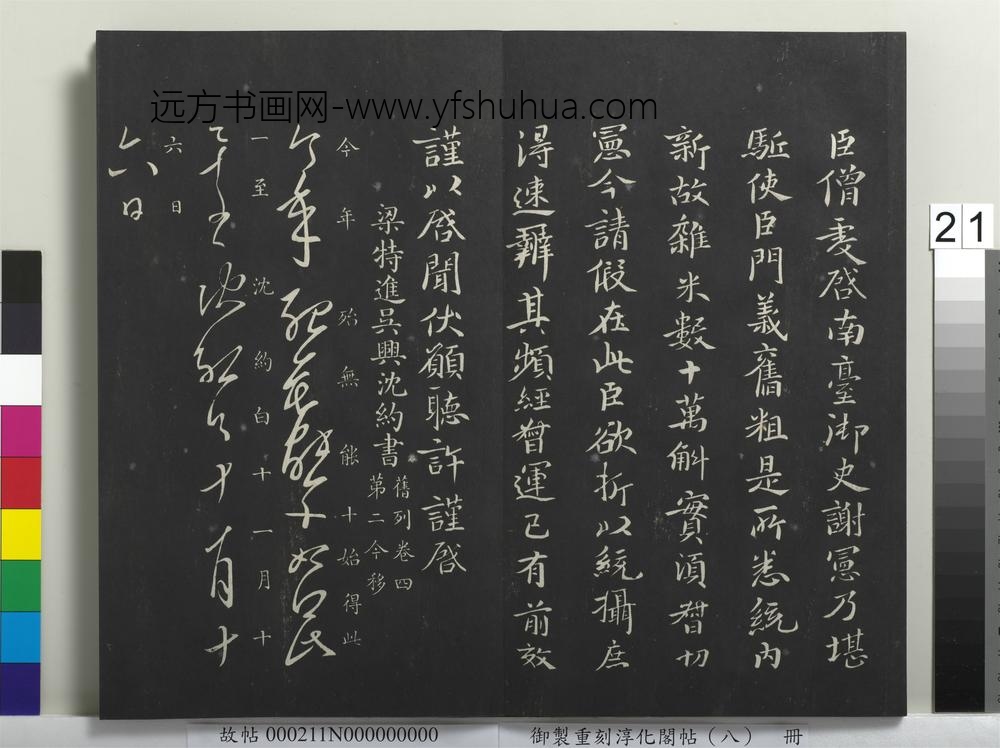 远方书画网-www.yfshuhua.com
臣僧虔啓南臺御史謝憲乃堪
駈使臣門義舊粗是所悉統內
新故雜米數十萬斛實須督切
憲今請假在此臣欲折以統攝庶
得速辦其頻經督運已有前效
謹以啓聞伏願聽許謹啓
梁特進吳興沈約書
舊列卷四
第二今移
今年殆無能十始得此
今年殆無能十始得此
一至沈約白十一月十
一至沈約白十一月十
六日
六日
21
故帖 000211N000000000
御製重刻淳化閣帖（八） 冊